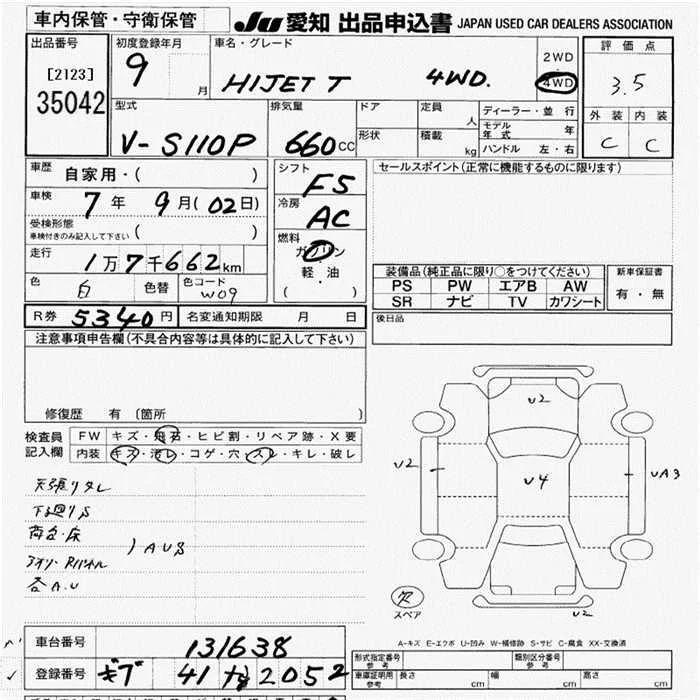 車内保管・守衛保管
JU 愛知 出品申込書 JAPAN USED CAR DEALERS ASSOCIATION
出品番号
[2123]
35042
初度登録年月
9 月
車名・グレード
HIJET T 4WD.
2WD
4WD
評価点
3.5
外装 内装
C C
型式
V-S110P
排気量
660CC
ドア
形状
定員
人
積載
kg
ディーラー・並行
モデル年式 年
ハンドル 左・右
車歴 自家用・( )
車検 7年 9月(02日)
受検形態
車検付きのみ記入して下さい ( )
走行 1万7千662km
色 白 色替 色コード W09
R券 5340円 名変通知期限 月 日
シフト F5
冷房 AC
燃料
ガソリン
軽・油
( )
セールスポイント(正常に機能するものに限ります)
装備品(純正品に限り○をつけてください)
PS PW エアB AW
SR ナビ TV カワシート
新車保証書
有・無
後日品
注意事項申告欄(不具合内容等は具体的に記入して下さい)
修復歴 有 〔箇所 〕
検査員
記入欄
FW キズ・飛石・ヒビ割・リペア跡・X要
内装 キズ・汚レ・コゲ・穴・スレ・キレ・破レ
天張りタレ
下廻りS
荷台・床
AU3
アオリ・Rパネル
各A.U
U2
U2
U4
UA3
U2
欠
スペア
A-キズ E-エクボ U-凹み W-補修跡 S-サビ C-腐食 XX-交換済
車台番号 131638
登録番号 ギフ 41 な 2052
形式指定番号
参考
類別区分番号
参考
車庫証明用
参考
長さ cm 幅 cm 高さ cm